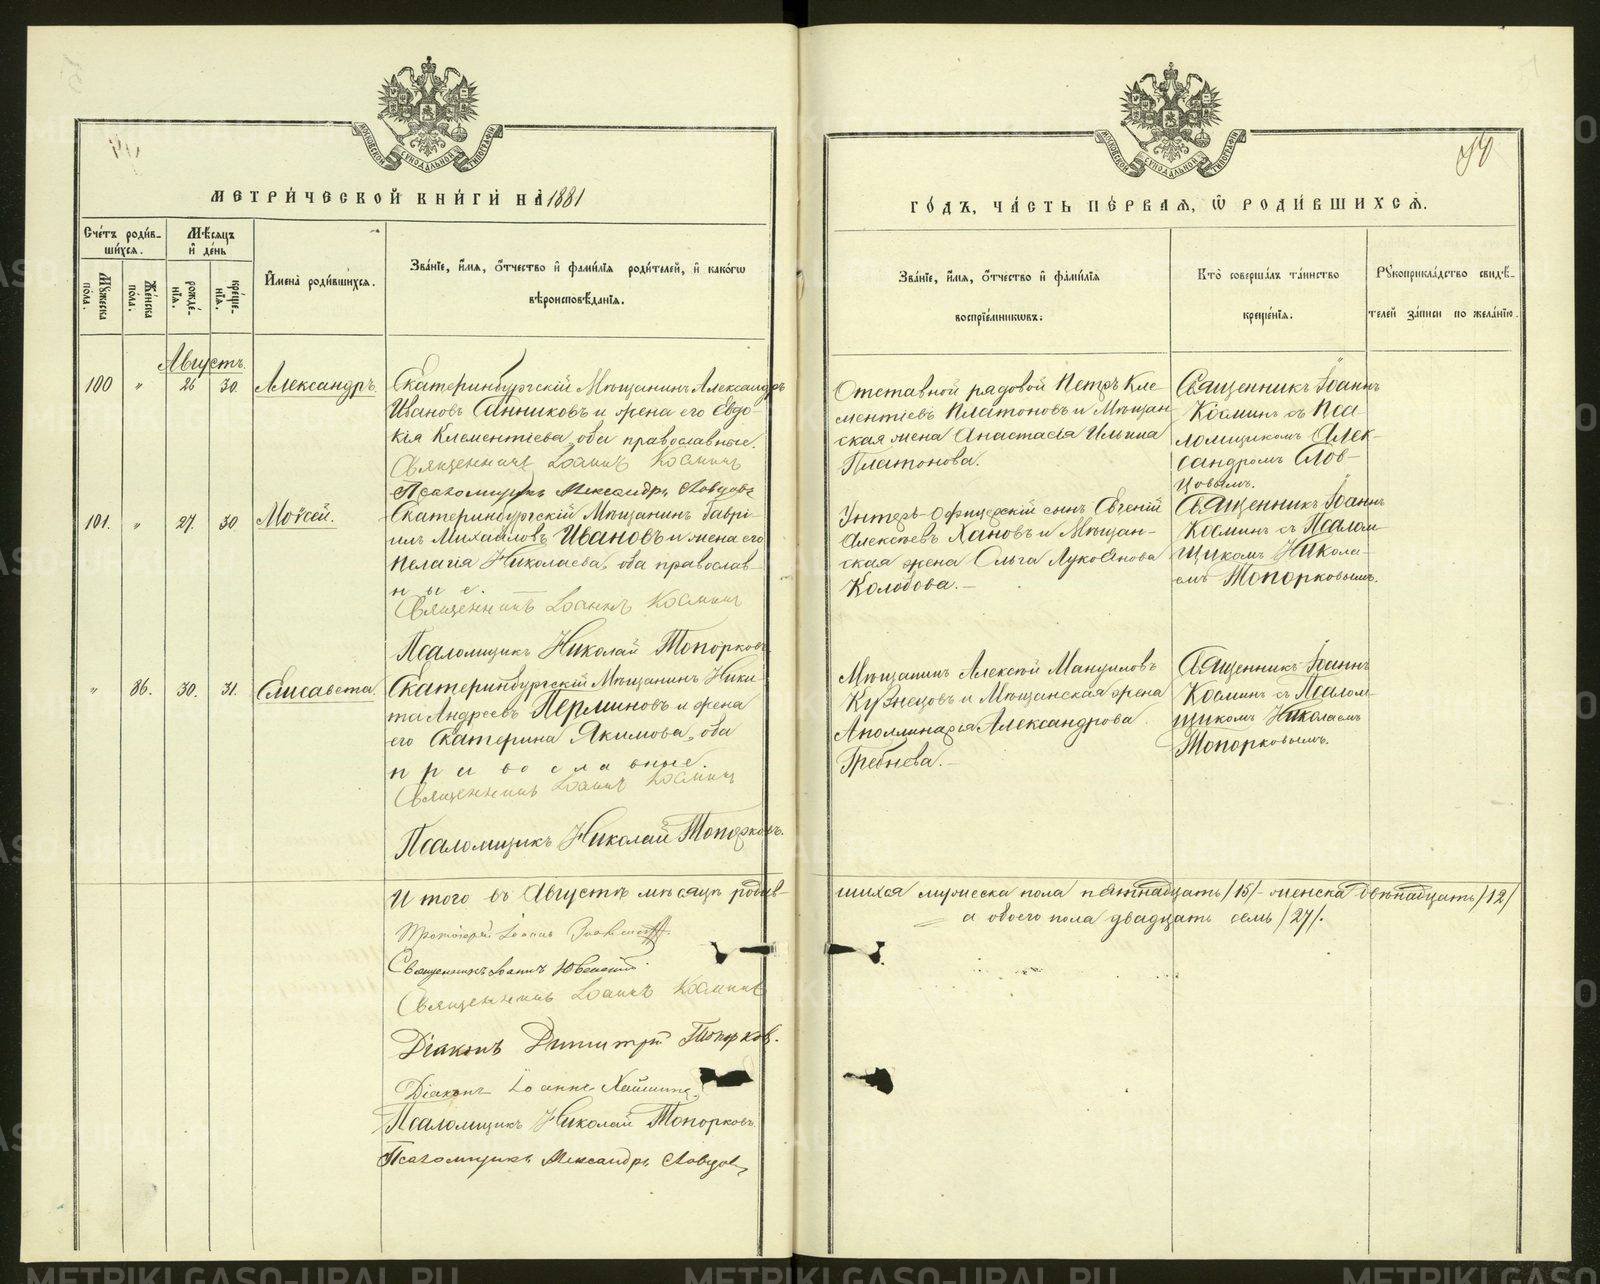 МОСКОВСКОЙ СУНОДАЛЬНОЙ ТИПОГРАФІИ
МЕТРИ́ЧЕСКОЙ КНИ́ГИ НА̀ 1881
Сче́тъ роди́в-
ши́хся.
Мѣ́сяцъ
и҆ де́нь
Мꙋ́жеска по́ла.
Же́нска по́ла.
рожде́-
нїѧ.
креще́-
нїѧ.
И҆мена̀ роди́вшихся.
Зва́нїе, и҆́мя, ѻ҆́тчество и҆ фами́лїя роди́телей, и҆ како́гѡ
вѣроисповѣ́данїя.
Августъ.
100 " 26 30. Александръ.
Екатеринбургскій Мѣщанинъ Александръ
Ивановъ Санниковъ и жена его Евдо-
кія Клементіева, оба православные.
Священникъ Іоаннъ Косминъ
Псаломщикъ Александръ Словцовъ
101. " 27. 30 Моѵсей.
Екатеринбургскій Мѣщанинъ Гаврі-
илъ Михаиловъ Ивановъ и жена его
Пелагія Николаева, оба православ-
ные.
Священникъ Іоаннъ Косминъ
Псаломщикъ Николай Топорковъ
" 86. 30. 31. Елисавета.
Екатеринбургскій Мѣщанинъ Ники-
та Андреевъ Перминовъ и жена
его Екатерина Якимова, оба
православные.
Священникъ Іоаннъ Косминъ
Псаломщикъ Николай Топорковъ.
Итого въ Августѣ мѣсяцѣ родив-
Протоіерей Іоаннъ
Священникъ Іоаннъ
Священникъ Іоаннъ Косминъ
Діаконъ Димитрій Топорковъ.
Діаконъ Іоаннъ
Псаломщикъ Николай Топорковъ.
Псаломщикъ Александръ Словцовъ
МОСКОВСКОЙ СУНОДАЛЬНОЙ ТИПОГРАФІИ
ГО́ДЪ, ЧА́СТЬ ПЕ́РВАЯ, Ѡ҆ РОДИ́ВШИХСѦ.
Зва́нїе, и҆́мя, ѻ҆́тчество и҆ фами́лїя
воспрїе́мникѡвъ.
Кто̀ соверша́лъ та́инство
креще́нїя.
Рꙋкоприкла́дство свидѣ́-
телей за́писи по жела́нїю.
Отставной рядовой Петръ Кле-
ментіевъ Платоновъ и Мѣщан-
ская жена Анастасія Ильина
Платонова.
Священникъ Іоаннъ
Косминъ съ Пса-
ломщикомъ Алек-
сандромъ Слов-
цовымъ.
Унтеръ-Офицерскій сынъ Евгеній
Алексѣевъ Хановъ и Мѣщан-
ская жена Ольга Лукоянова
Колобова.
Священникъ Іоаннъ
Косминъ съ Псалом-
щикомъ Никола-
емъ Топорковымъ.
Мѣщанинъ Алексѣй Мануиловъ
Кузнецовъ и Мѣщанская жена
Аполлинарія Александрова
Гребнева.
Священникъ Іоаннъ
Косминъ съ Псалом-
щикомъ Николаемъ
Топорковымъ.
шихся мужеска пола пятнадцать /15/ женска двѣнадцать /12/
а обоего пола двадцать семь /27/.
METRIKI.GASO-URAL.RU